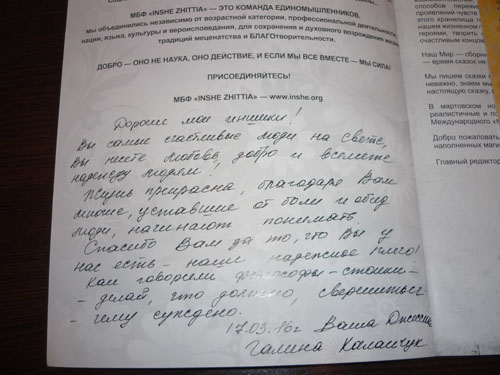 МБФ «INSHE ZHITTIA» — ЭТО КОМАНДА ЕДИНОМЫШЛЕННИКОВ,
мы объединились независимо от возрастной категории, профессиональной деятельности,
нации, языка, культуры и вероисповедания, для сохранения и духовного возрождения
традиций меценатства и БЛАГОтворительности.
ДОБРО — ОНО НЕ НАУКА, ОНО ДЕЙСТВИЕ, И ЕСЛИ МЫ ВСЕ ВМЕСТЕ — МЫ СИЛА!
ПРИСОЕДИНЯЙТЕСЬ!
МБФ «INSHE ZHITTIA» — www.inshe.org
Дорогие мои иншики!
Вы самые счастливые люди на свете,
Вы несте любовь, добро и вселяете
надежду людям!
Жизнь прекрасна, благодаря Вам
многие, уставшие от боли и обид
люди, начинают понимать.
Спасибо Вам за то, что Вы у
нас есть – наше надежное плечо!
Как говорили философы – стоики –
– делай, что должно, свершиться –
– чему суждено.
17.03.16г Ваша
Галина Каламчук
способов пережи
проявлений чувств
этого хранилища
нашем жизненном
героями, творить
счастливым концом
Наш Мир — сборни
— время сказок не
Мы пишем сказки
неважно, знаем мы
настоящую сказку,
В мартовском но
реалистичные и по
Международного «К
Добро пожаловать
наполненных маги
Главный редактор